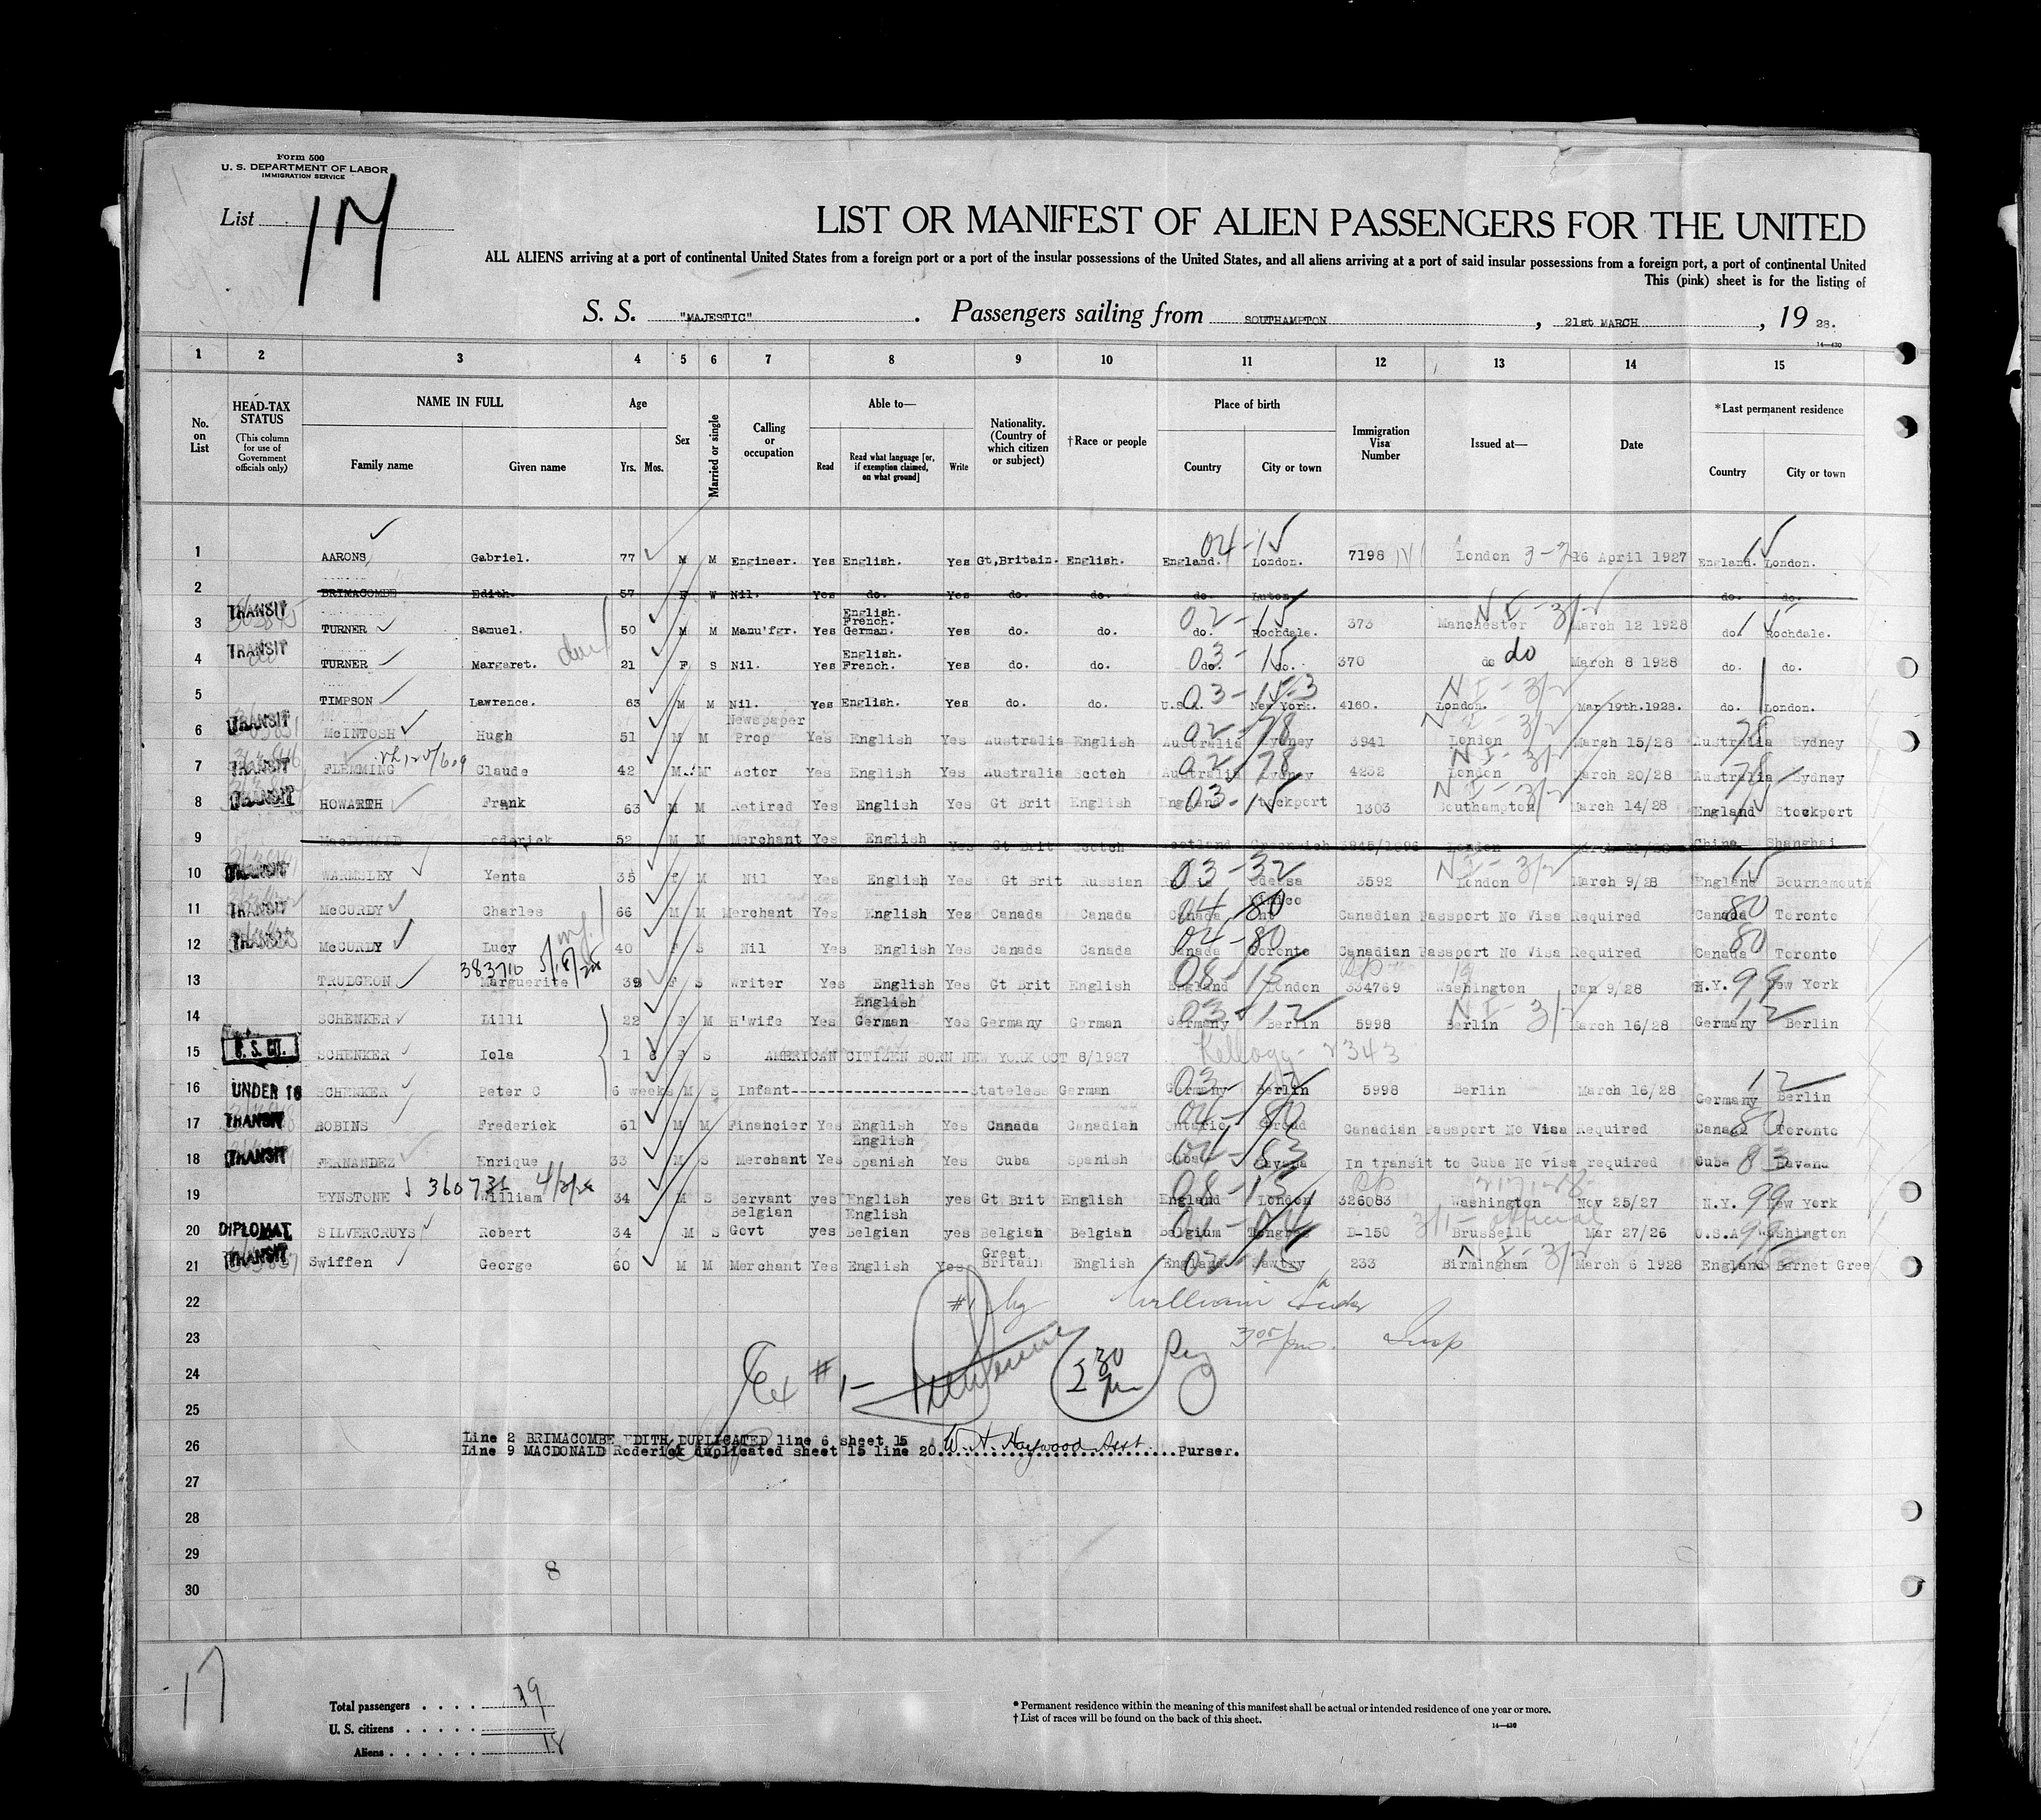 Form 500
U. S. DEPARTMENT OF LABOR
IMMIGRATION SERVICE
List 17
LIST OR MANIFEST OF ALIEN PASSENGERS FOR THE UNITED
ALL ALIENS arriving at a port of continental United States from a foreign port or a port of the insular possessions of the United States, and all aliens arriving at a port of said insular possessions from a foreign port, a port of continental United
This (pink) sheet is for the listing of
S. S. "MAJESTIC". Passengers sailing from SOUTHAMPTON, 21st MARCH, 19 28.
14—430
1 2 3 4 5 6 7 8 9 10 11 12 13 14 15
No. on List
HEAD-TAX STATUS (This column for use of Government officials only)
NAME IN FULL Family name Given name
Age Yrs. Mos.
Sex
Married or single
Calling or occupation
Able to— Read Read what language [or, if exemption claimed, on what ground] Write
Nationality. (Country of which citizen or subject)
†Race or people
Place of birth Country City or town
Immigration Visa Number
Issued at—
Date
*Last permanent residence Country City or town
1 AARONS Gabriel. 77 M M Engineer. Yes English. Yes Gt,Britain. English. England. London. 04-15 7198 London 3-2 16 April 1927 England. London. 15
2 BRIMACOMBE Edith. 57 F W Nil. Yes do. Yes do. do. do. Luton. do. do.
3 TRANSIT TURNER Samuel. 50 M M Manu'fgr. Yes English. French. German. Yes do. do. do. Rochdale. 02-15 373 Manchester NI-3/2 March 12 1928 do. Rochdale. 15
4 TRANSIT TURNER Margaret. 21 F S Nil. Yes English. French. Yes do. do. do. do. 03-15 370 do do March 8 1928 do. do.
5 TIMPSON Lawrence. 63 M M Nil. Yes English. Yes do. do. U.S.A. New York. 03-15-3 4160. London. NI-3/2 Mar 19th.1928. do. London.
6 TRANSIT McINTOSH Hugh 51 M M Newspaper Prop Yes English Yes Australia English Australia Sydney 02-78 3941 London NI-3/2 March 15/28 Australia Sydney 78
7 TRANSIT FLEMMING Claude 42 M M Actor Yes English Yes Australia Scotch Australia Sydney 02-78 4232 London NI-3/2 March 20/28 Australia Sydney 78
8 TRANSIT HOWARTH Frank 63 M M Retired Yes English Yes Gt Brit English England Stockport 03-15 1303 Southampton NI-3/2 March 14/28 England Stockport 15
9 MacDONALD Roderick 52 M M Merchant Yes English Yes Gt Brit Scotch Scotland London China Shanghai
10 TRANSIT WARMSLEY Yenta 35 F M Nil Yes English Yes Gt Brit Russian Odessa 03-32 3592 London NI-3/2 March 9/28 England Bournemouth 15
11 TRANSIT McCURDY Charles 66 M M Merchant Yes English Yes Canada Canada Canada Ont 04-80 Canadian Passport No Visa Required Canada Toronto 80
12 TRANSIT McCURDY Lucy 40 F S Nil Yes English Yes Canada Canada Canada Toronto 04-80 Canadian Passport No Visa Required Canada Toronto 80
13 TRUDGEON 383710 5/18/28 Marguerite 39 F S Writer Yes English Yes Gt Brit English England London 08-15 334769 Washington Jan 9/28 N.Y. New York 99
14 SCHENKER Lilli 22 F M H'wife Yes English German Yes Germany German Germany Berlin 03-12 5998 Berlin NI-3/2 March 16/28 Germany Berlin 12
15 U. S. CIT. SCHENKER Iola 1 6 F S AMERICAN CITIZEN BORN NEW YORK OCT 8/1927 Kellogg-2343
16 UNDER 16 SCHENKER Peter C 6 weeks M S Infant---------------------Stateless German Germany Berlin 03-12 5998 Berlin March 16/28 Germany Berlin 12
17 TRANSIT ROBINS Frederick 61 M M Financier Yes English Yes Canada Canadian Ontario 04-80 Canadian Passport No Visa Required Canada Toronto 80
18 TRANSIT FERNANDEZ Enrique 33 M S Merchant Yes English Spanish Yes Cuba Spanish Cuba Havana 04-83 In transit to Cuba No visa required Cuba Havana 83
19 EYNSTONE William 34 M S Servant yes English yes Gt Brit English England London 08-15 326083 Washington Nov 25/27 N.Y. New York 99
20 DIPLOMAT SILVERCRUYS Robert 34 M S Belgian Govt yes English Belgian yes Belgian Belgian Belgium Tongres 01-04 D-150 Brussells 3/1-official Mar 27/26 U.S.A Washington 99
21 TRANSIT Swiffen George 60 M M Merchant Yes English Yes Great Britain English England Sawtry 02-15 233 Birmingham NI-3/2 March 6 1928 England Barnet Gree 15
22 #1 by William
23 3 05/pm. Insp
24 Ex #1- 2 30 pm
25
Line 2 BRIMACOMBE EDITH DUPLICATED line 6 sheet 15
26 Line 9 MACDONALD Roderick duplicated sheet 15 line 20. W. H. Haywood Asst. Purser.
27
28
29
8
30
17
Total passengers 19
U. S. citizens
Aliens 18
*Permanent residence within the meaning of this manifest shall be actual or intended residence of one year or more.
†List of races will be found on the back of this sheet.
14—430